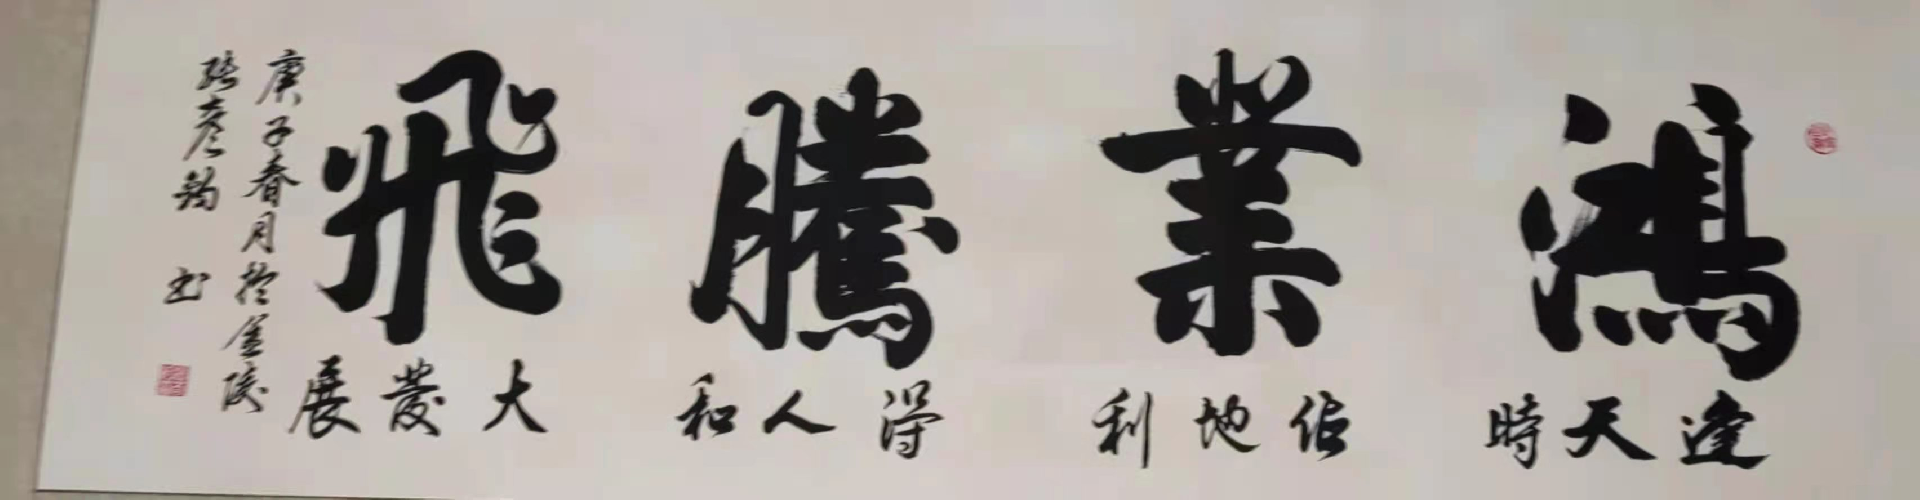 鴻業騰飛
逢天時
佔地利
得人和
大發展
庚子春月於金陵
張彦鈞 书